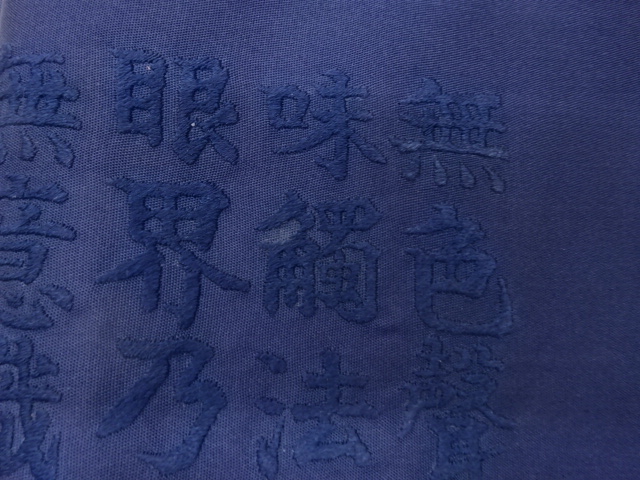 無色聲
味觸法
眼界乃
無意識